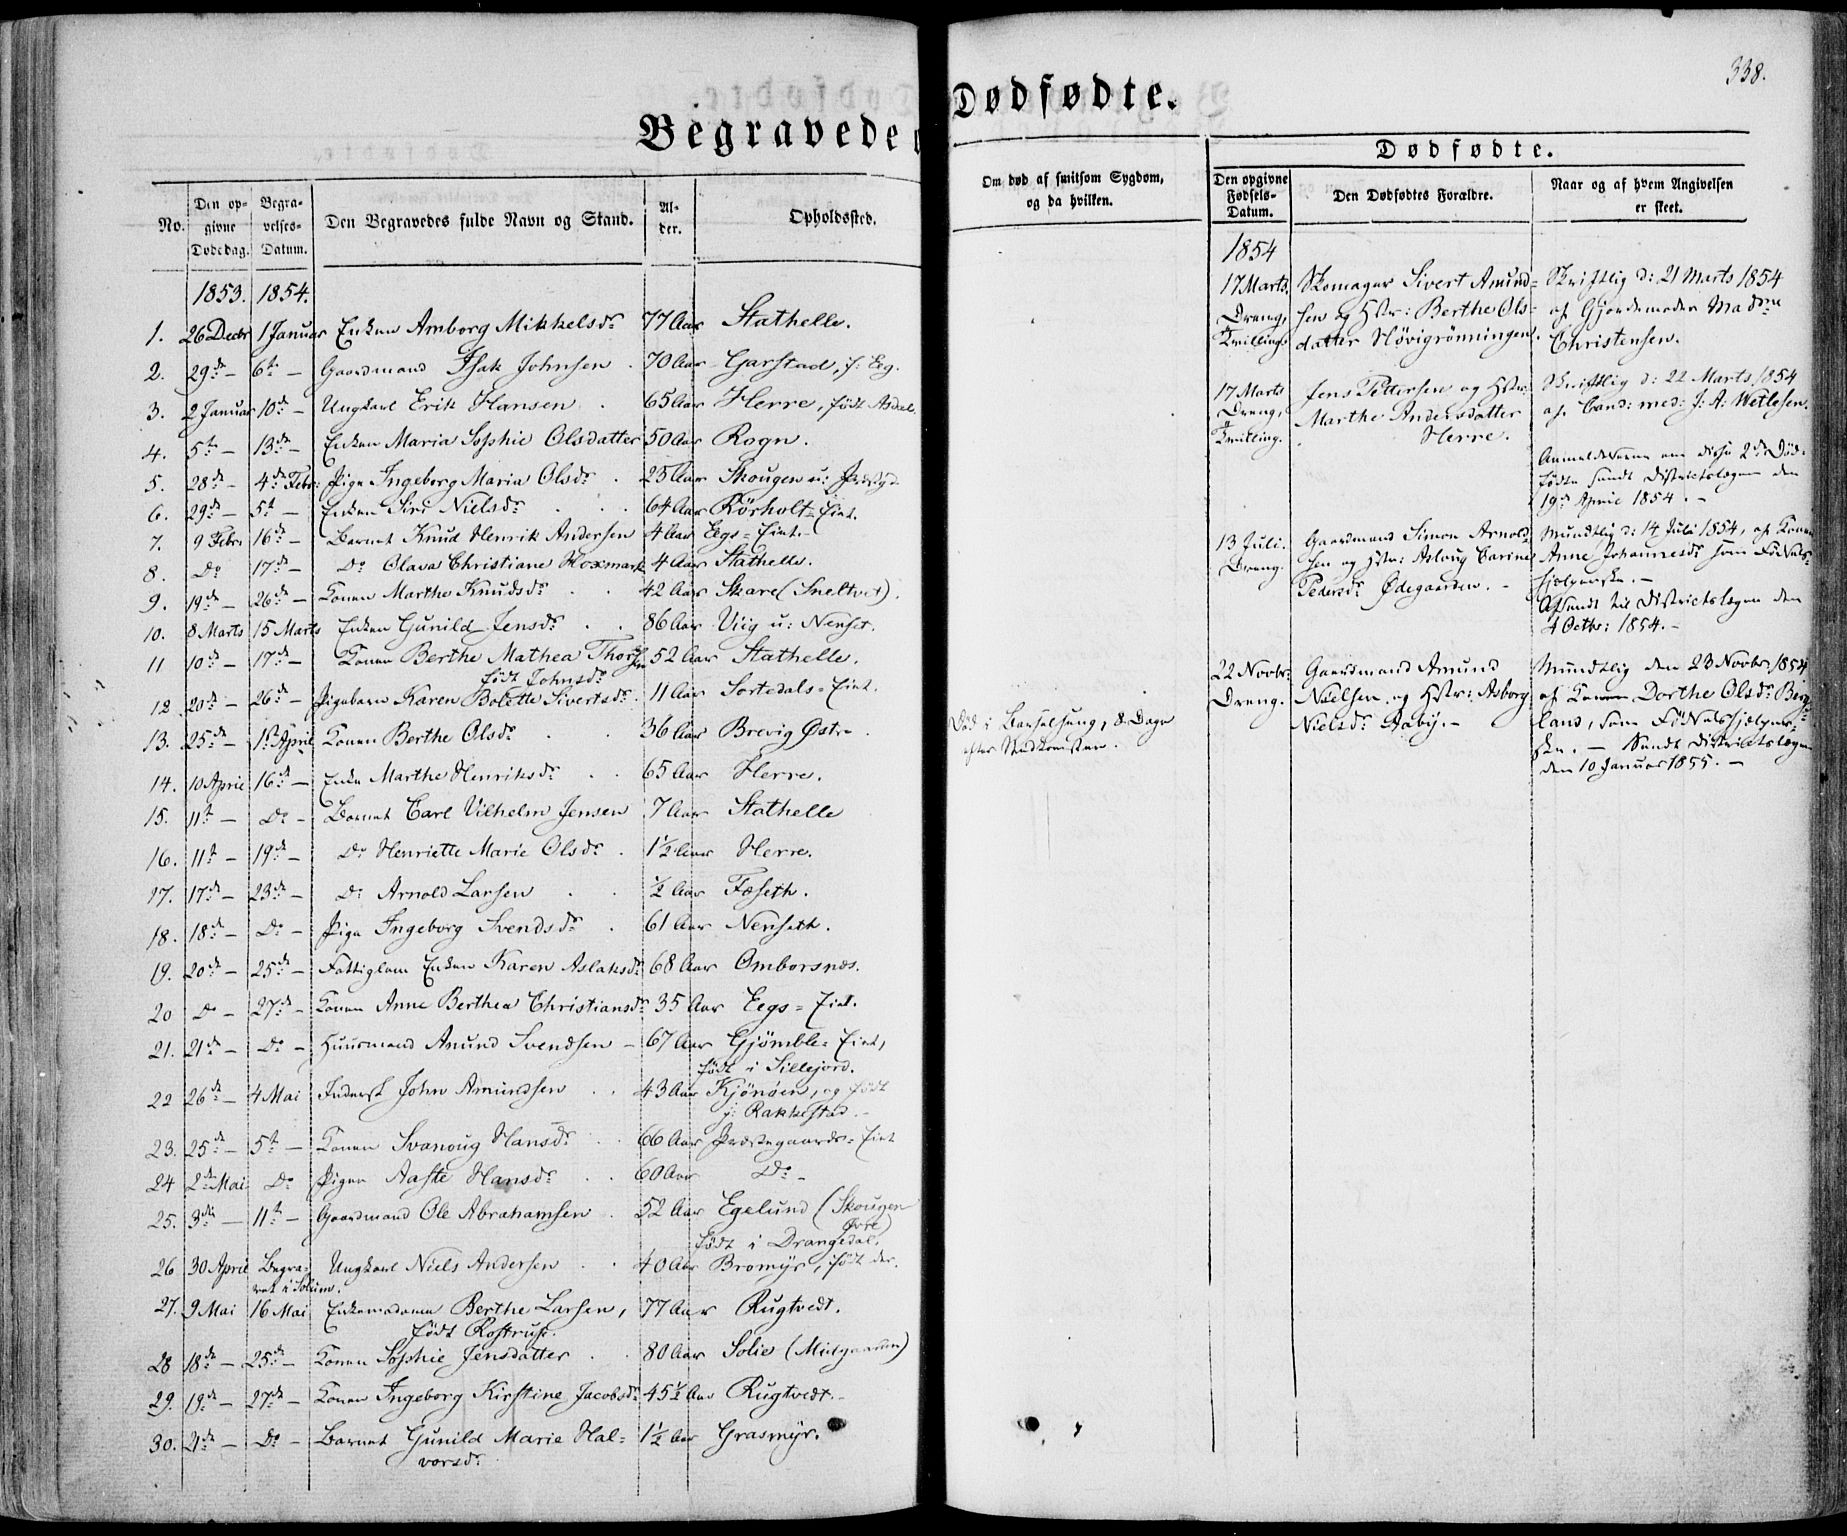 338.
Begravede o
Dødfødte.
No.
Den opgivne Dødedag.
Begravelses-Datum.
Den Begravedes fulde Navn og Stand.
Alder.
Opholdssted.
1853. 1854.
1. 26 Decbr 1 Januar Enken Amborg Mikkelsdr 77 Aar Stathelle.
2. 29de — 6te — Gaardmand Isak Johnsen 70 Aar Garstad, f: Eeg.
3. 2 Januar 10de — Ungkarl Erik Hansen 65 Aar Herre, født Asdal.
4. 5te — 13de — Enken Maria Sophie Olsdatter 50 Aar Rogn.
5. 28de — 4de Febr: Pige Ingeborg Maria Olsdr 23 Aar Skougen u:
6. 29de — 5te — Enken Siri Nielsdr 64 Aar Rörholt-Eiet.
7. 9 Febr. 16de — Barnet Knud Henrik Andersen 4 Aar Eegs-Eiet.
8. Do 17de — Do Olava Christiane Hoxmark 4 Aar Stathelle.
9. 19de — 26de — Konen Marthe Knudsdr 42 Aar Skare (Sneltvet).
10. 8 Marts 15 Marts Enken Gunild Jensdr 86 Aar Viig u: Nenset.
11 10de — 17de — Konen Berthe Mathea Thorsen 52 Aar Stathelle.
født Johnsdr
12 20de — 26de — Pigebarn Karen Bolette Sivertsdr. 11 Aar Sortedals-Eiet.
13. 25de — 1ste April Konen Berthe Olsdr 36 Aar Brevig Østre
14. 10 April 16de — Enke Marthe Henriksdr 65 Aar Herre.
15. 11te — Do — Barnet Carl Vilhelm Jensen 7 Aar Stathelle
16. 11te — 19de — Do Henriette Marie Olsdr. 1½ Aar Herre.
17. 17de — 23de — Do Arnold Larsen ½ Aar Fæseth.
18. 18de — Do — Pige Ingeborg Svendsdr 61 Aar Nenseth.
19. 20de — 25de — Fattiglem Enken Karen Aslaksdr 68 Aar Omborsnæs.
20 Do — 27de — Konen Anne Berthea Christiansdr 35 Aar Eegs-Eiet.
21. 21de — Do — Huusmand Anund Svendsen — 67 Aar Gjömble-Eiet,
født i Sillejord.
22 26de — 4 Mai Inderst John Amundsen 43 Aar Kjönöen, og født
i: Rakkestad.
23. 25de — 5te — Konen Svanoug Hansdr 66 Aar Præstegaards-Eiet
24 2den Mai Do Pigen Aaste Hansdr 60 Aar Do —
25. 3die — 11te — Gaardmand Ole Abrahamsen 52 Aar Egelund (Skougen
Øvre)
født i Drangedal.
26 30 April Begravet i Solum. Ungkarl Niels Andersen 40 Aar Bromyr, født der.
27. 9 Mai 16 Mai Enkemadame Berthe Larsen, 77 Aar Rugtvedt.
født Rostrup.
28 18de — 25de — Konen Sophie Jensdatter 80 Aar Solie (Midgaarden)
29. 19de — 27de — Konen Ingeborg Kirstine Jacobsdr 45½ Aar Rugtvedt.
30. 21de — Do — Barnet Gunild Marie Hal- 1½ Aar Grasmyr.
vorsdr
Om død af smitsom Sygdom,
og da hvilken.
Død i Barselseng, 8 Dage
efter Nedkomsten.
Dødfødte.
Den opgivne Fødsels-Datum.
Den Dødfødtes Forældre.
Naar og af hvem Angivelsen
er skeet.
1854
17 Marts. Skomager Sivert Amund- Skriftlig d: 21 Marts 1854
Dreng, sen og Hstr: Berthe Ols- af Gjordemoder Madme
Tvilling. datter Høvigrønningen. Christensen.
17 Marts Jens Pettersen og Hstr: Skriftlig d: 22 Marts 1854
Dreng, Marthe Andersdatter af Cand: med: J: A: Wetlesen.
Tvilling. Herre.
Anmeldelserne om disse 2de Død-
fødte sendt Districtslægen den
19de April 1854. —
13 Juli. Gaardmand Simon Arnold- Mundtlig d: 14 Juli 1854, af Konen
Dreng. sen og Hstr: Aslaug Carine Anne Johannesdr som Fødsels-
Pedersdr Ødegaarden. — hjelperske. —
Afsendt til Districtslægen den
4 Octbr: 1854. —
22 Novbr. Gaardmand Amund Mundtlig den 23 Novbr. 1854
Dreng. Nielsen og Hstr: Asborg af Konen Dorthe Olsdr Berg-
Nielsdr Aaby. — land, som Fødselshjelper-
ske. — Sendt Districtslægen
den 10 Januar 1855. —